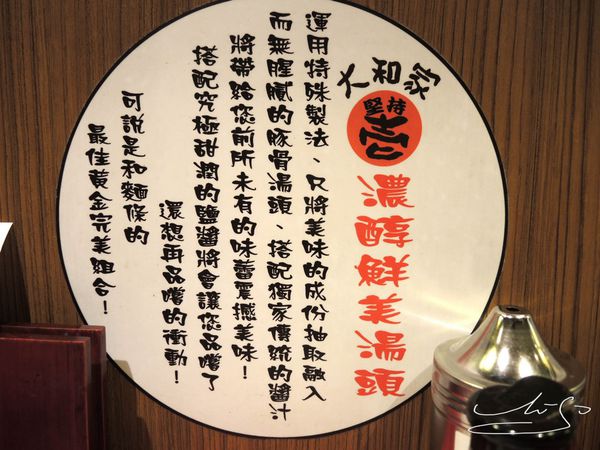 大和家
堅持
壱
濃醇鮮美湯頭
運用特殊製法、只將美味的成份抽取融入
而無腥膩的豚骨湯頭、搭配獨家傳統的醬汁
將帶給您前所未有的味蕾震撼美味！
搭配究極甜潤的鹽醬將會讓您品嚐了
還想再品嚐的衝動！
可說是和麵條的
最佳黃金完美組合！